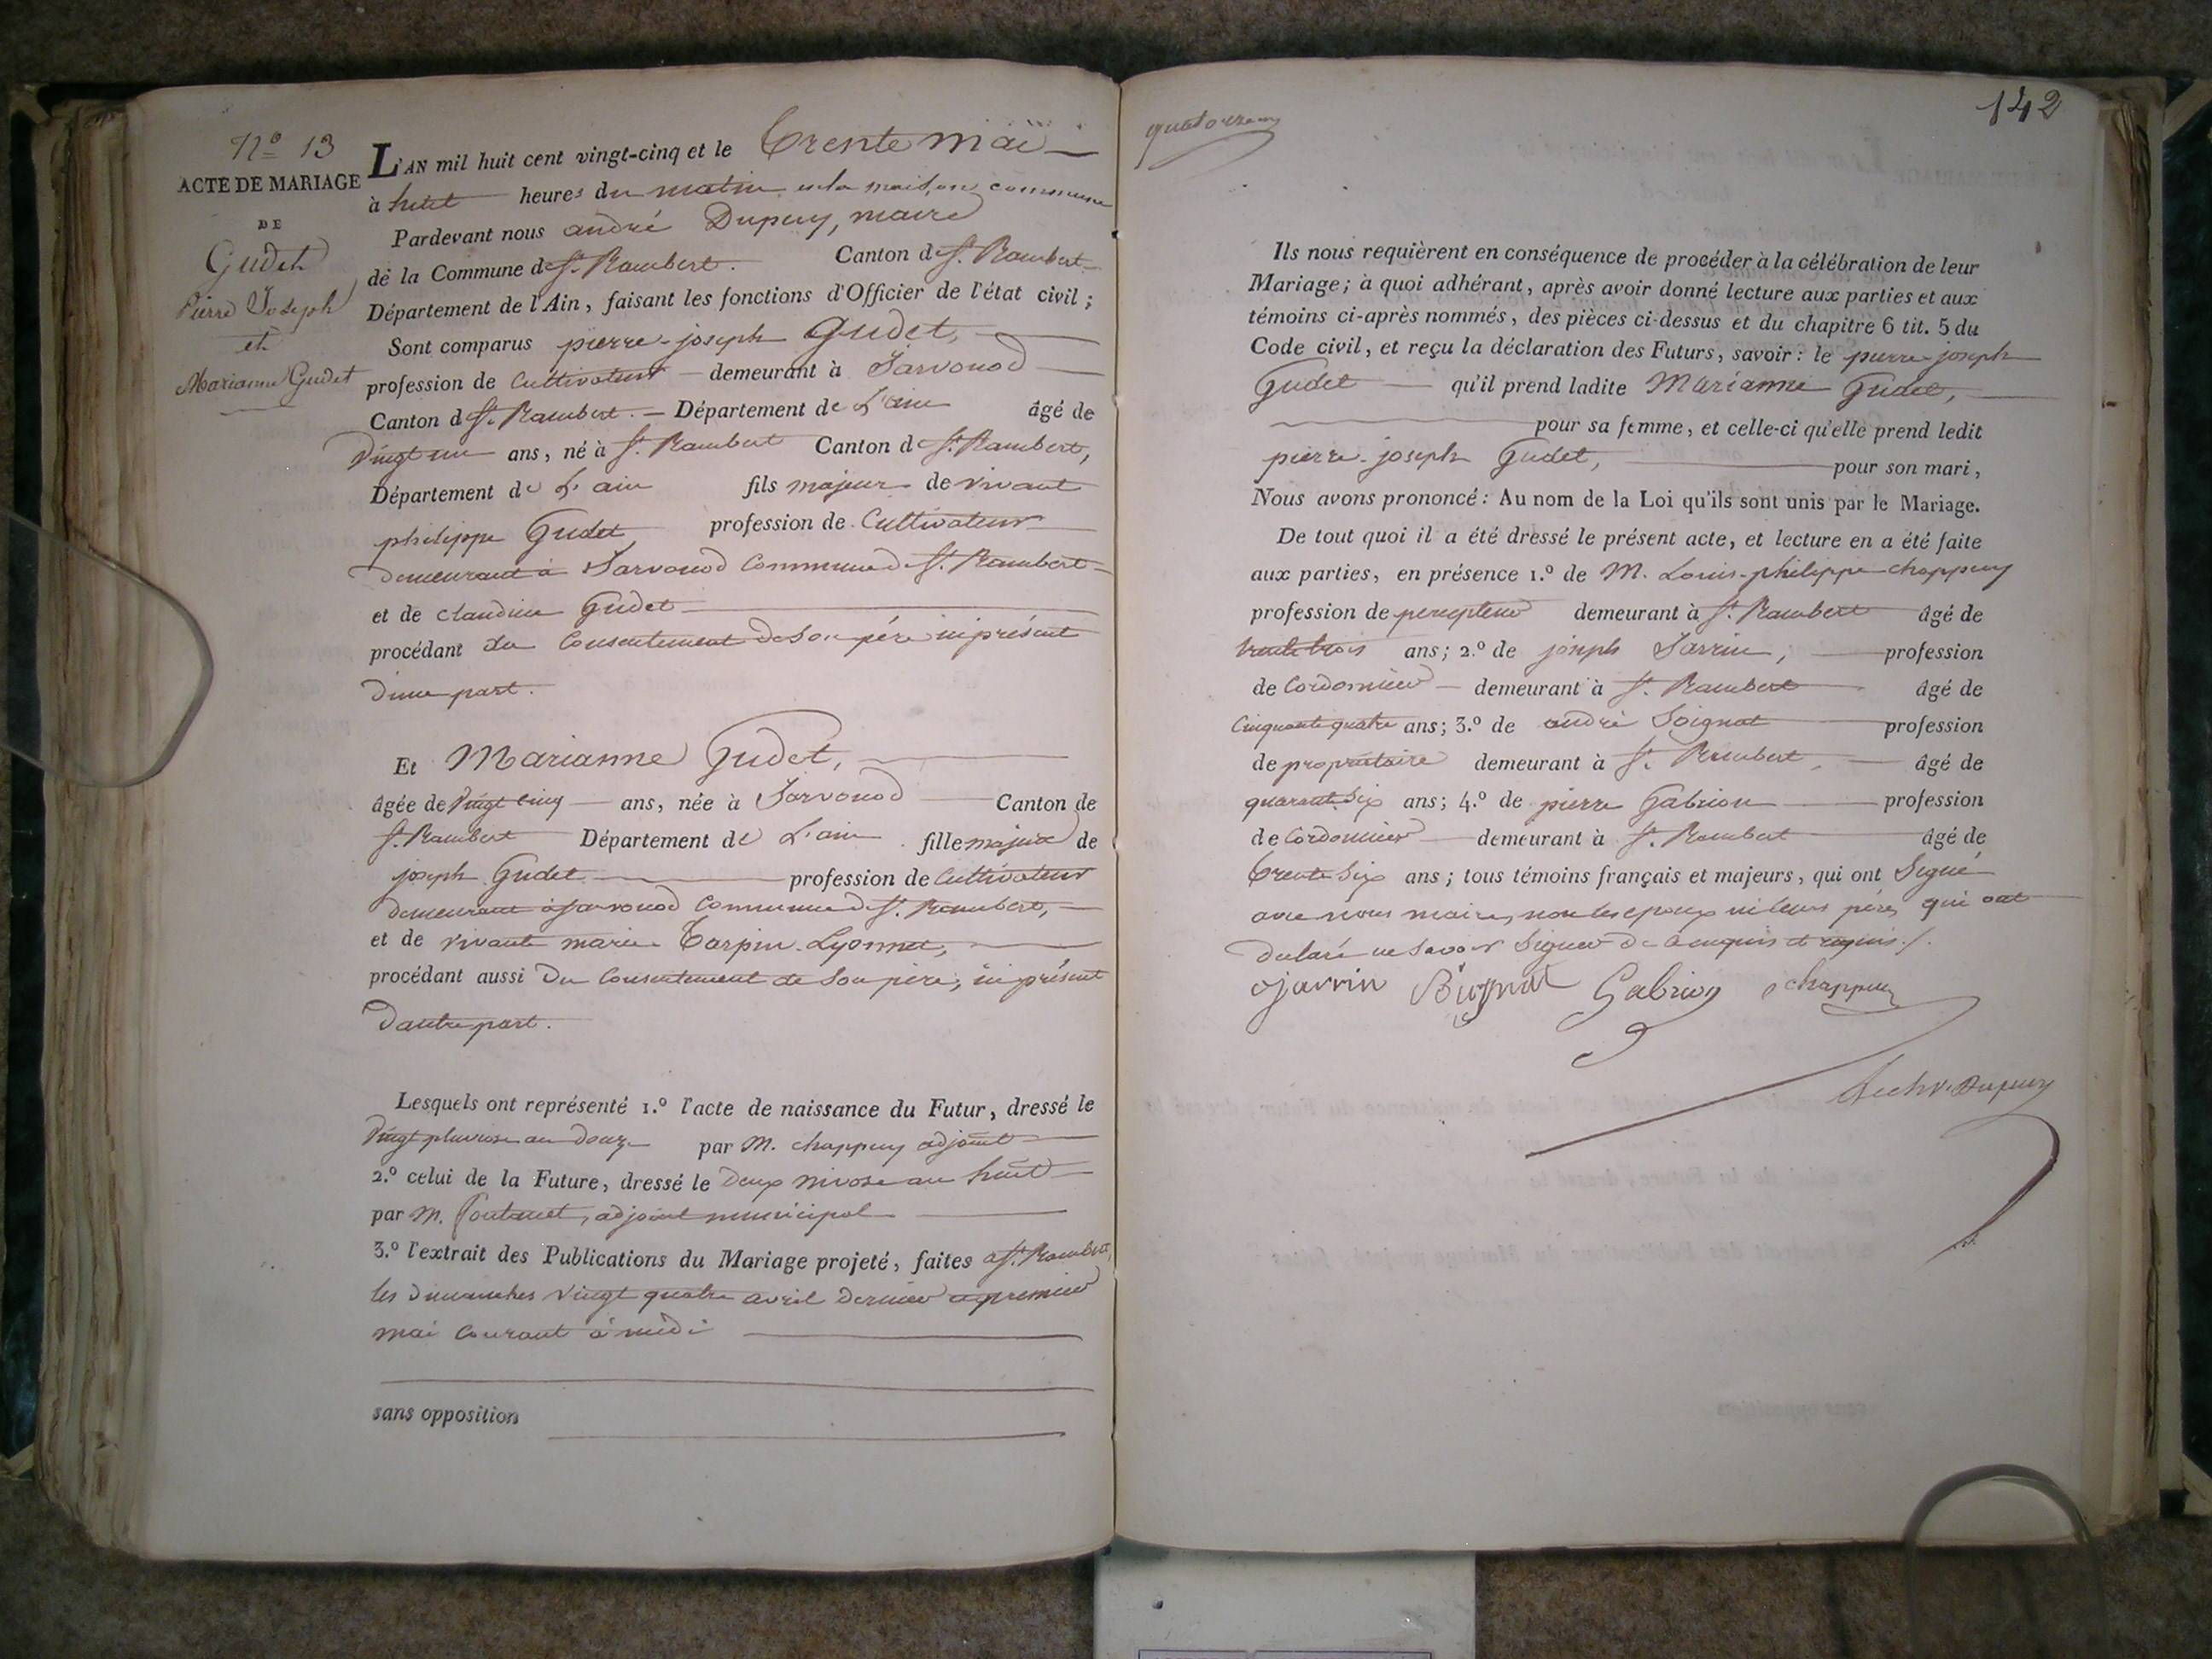 N.º 13
ACTE DE MARIAGE
DE
Gudet
Pierre Joseph
et
Marianne Gudet
L'AN mil huit cent vingt-cinq et le trente mai
à huit heures du matin en la maison commune
Pardevant nous andré Dupuy, maire
de la Commune de St. Rambert. Canton de St. Rambert
Département de l'Ain, faisant les fonctions d'Officier de l'état civil;
Sont comparus pierre-joseph Gudet,
profession de Cultivateur demeurant à Sarvonod
Canton de St. Rambert. Département de L'ain âgé de
Vingt un ans, né à St. Rambert Canton de St. Rambert,
Département de L'ain fils majeur de vivant
philippe Gudet profession de Cultivateur
demeurant à Sarvonod Commune de St. Rambert
et de claudine Gudet
procédant du Consentement de Son père ici présent
d'une part.
Et Marianne Gudet,
âgée de Vingt cinq ans, née à Sarvonod Canton de
St. Rambert Département de L'ain fille majeure de
joseph Gudet profession de Cultivateur
demeurant à Sarvonod Commune de St. Rambert,
et de vivante marie Tarpin-Lyonnet,
procédant aussi Du Consentement de Son père, ici présent
D'autre part.
Lesquels ont représenté 1.º l'acte de naissance du Futur, dressé le
Vingt pluviose an Douze par M. chappuy adjoint
2.º celui de la Future, dressé le Deux nivose an huit
par M. adjoint municipal
3.º l'extrait des Publications du Mariage projeté, faites à St. Rambert,
les dimanches vingt quatre avril dernier et premier
mai Courant à midi
sans opposition
142
Ils nous requièrent en conséquence de procéder à la célébration de leur
Mariage; à quoi adhérant, après avoir donné lecture aux parties et aux
témoins ci-après nommés, des pièces ci-dessus et du chapitre 6 tit. 5 du
Code civil, et reçu la déclaration des Futurs, savoir: le pierre-joseph
Gudet qu'il prend ladite Marianne Gudet,
pour sa femme, et celle-ci qu'elle prend ledit
pierre-joseph Gudet, pour son mari,
Nous avons prononcé: Au nom de la Loi qu'ils sont unis par le Mariage.
De tout quoi il a été dressé le présent acte, et lecture en a été faite
aux parties, en présence 1.º de M. Louis-philippe chappuy
profession de percepteur demeurant à St. Rambert âgé de
trente trois ans; 2.º de joseph Jarrin, profession
de Cordonnier demeurant à St. Rambert âgé de
Cinquante quatre ans; 3.º de andré profession
de propriétaire demeurant à St. Rambert, âgé de
quarante Six ans; 4.º de pierre Gabrion profession
de Cordonnier demeurant à St. Rambert âgé de
trente Six ans; tous témoins français et majeurs, qui ont Signé
avec nous maire, non les époux ni leurs pères qui ont
déclaré ne Savoir Signer de ce enquis et requis./.
Jarrin Gabrion chappuy
Dupuy